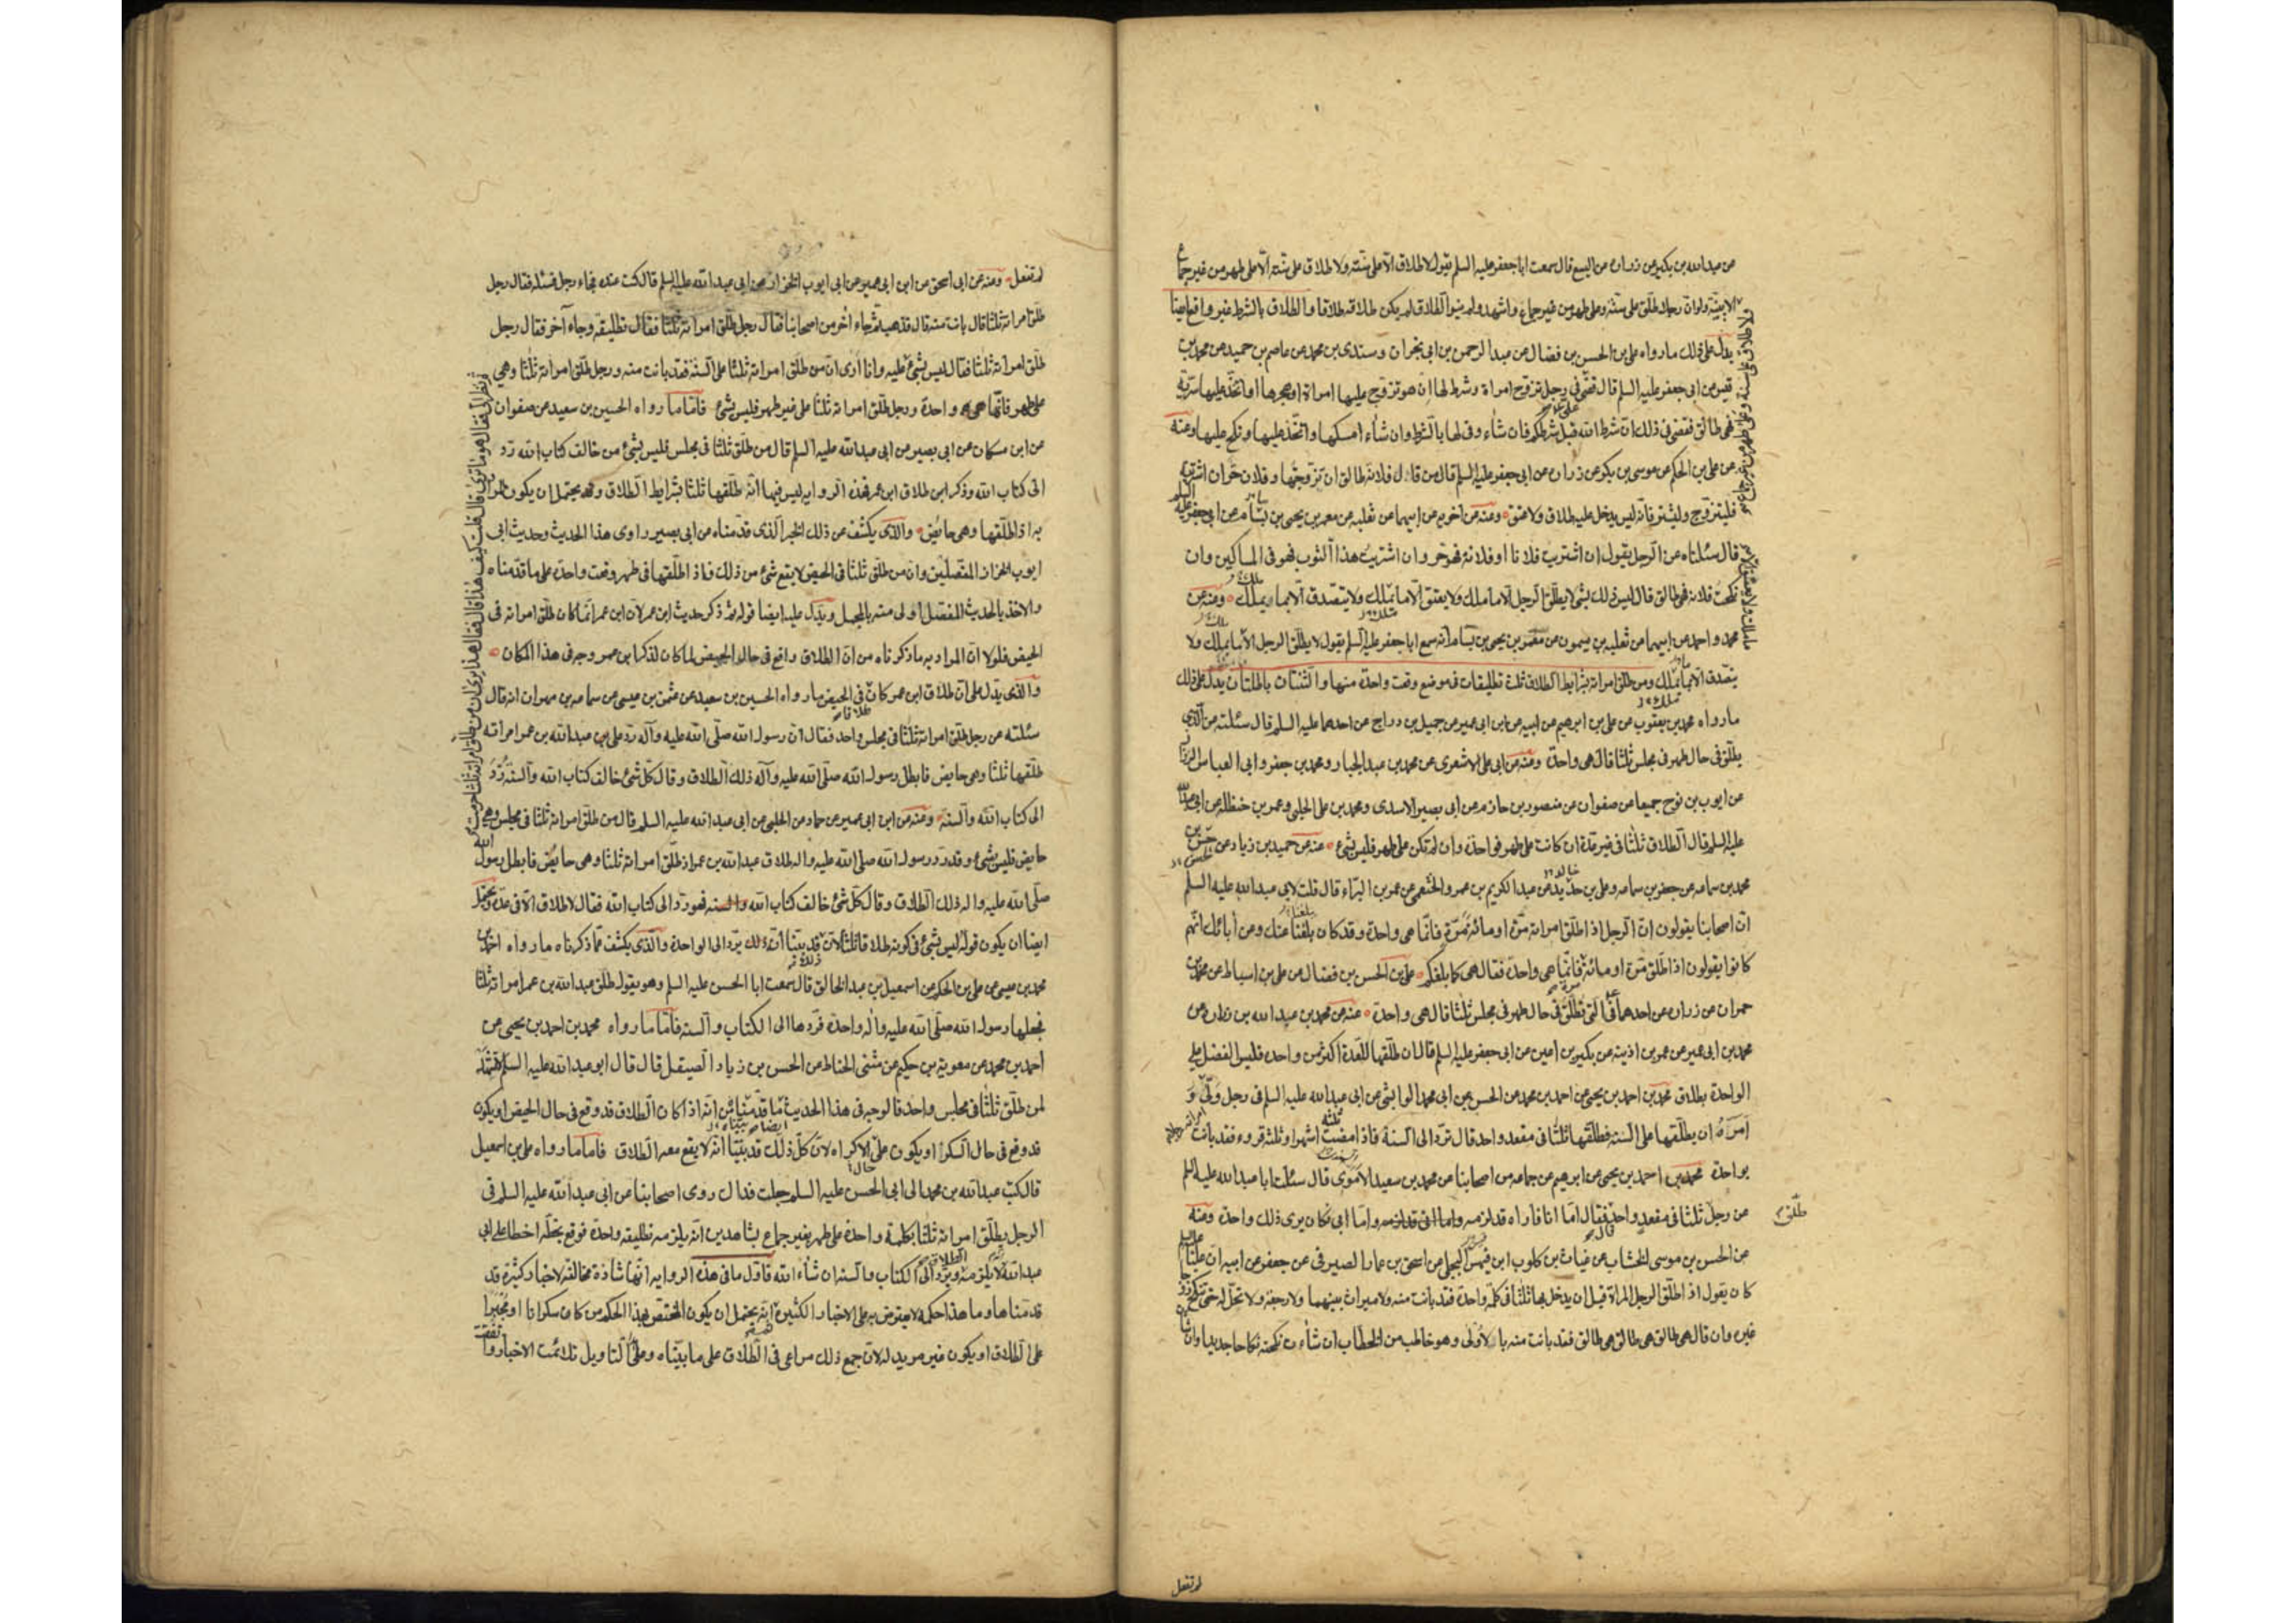 عن عبدالله بن بكير عن زرارة عن اليسع قال سمعت ابا جعفر عليه السلم يقول لا طلاق الا على سنة ولا طلاق على سنة الا على طهر من غير جماع
الا ببينة ولو ان رجلا طلق على سنة وعلى طهر من غير جماع واشهد ولم ينو الطلاق لم يكن طلاقه طلاقا والطلاق بالشرط غير واقع ايضا
يدل على ذلك ما رواه على بن الحسن بن فضال عن عبد الرحمن بن ابى نجران وسندى بن محمد عن عاصم بن حميد عن محمد بن
قيس عن ابى جعفر عليه السلم قال قضى فى رجل تزوج امراة وشرط لها ان هو تزوج عليها امراة او هجرها او اتخذ عليها سرية
فهى طالق فقضى فى ذلك ان شرط الله قبل شرطكم فان شاء وفى لها بالشرط وان شاء امسكها واتخذ عليها ونكح عليها وعنه
عن على بن الحكم عن موسى بن بكر عن زرارة عن ابى جعفر عليه السلم قال من قال فلانة طالق ان تزوجتها وفلان حر ان اشتريته
فليتزوج وليشتر فانه ليس يدخل عليه طلاق ولا عتق وعنه عن اخويه عن ابيهما عن ثعلبه عن معمر بن يحيى بن بسام عن ابى جعفر عليه السلم
قال سئلناه عن الرجل يقول ان اشتريت فلانا او فلانة فهو حر وان اشتريت هذا الثوب فهو فى المساكين وان
نكحت فلانة فهى طالق قال ليس ذلك بشئ لا يطلق الرجل الا ما ملك ولا يعتق الا ما يملك ولا يتصدق الا بما يملك وعنه عن
محمد واحمد عن ابيهما عن ثعلبه بن ميمون عن معمر بن يحيى بن بسام انه سمع ابا جعفر عليه السلم يقول لا يطلق الرجل الا ما يملك ولا
يتصدق الا بما يملك ومن طلق امراته بشرايط الطلاق ثلث تطليقات فى موضع وقعت واحدة منها والثنتان باطلتان يدل على ذلك
ما رواه محمد بن يعقوب عن على بن ابرهيم عن ابيه عن ابن ابى عمير عن جميل بن دراج عن احدهما عليه السلم قال سئلته عن الذى
يطلق فى حال طهر فى مجلس ثلثا قال هى واحدة وعنه عن ابى على الاشعرى عن محمد بن عبد الجبار ومحمد بن جعفر وابى العباس الرزاز
عن ايوب بن نوح جميعا عن صفوان عن منصور بن حازم عن ابى بصير الاسدى ومحمد بن على الحلبى وعمر بن حنظله عن ابى عبدالله
عليه السلم قال الطلاق ثلثا فى غير عدة ان كانت على طهر فواحدة وان لم تكن على طهر فليس بشئ عنه عن حميد بن زياد عن حسن بن
محمد بن سماعه عن جعفر بن سماعه وعلى بن خالد عن عبد الكريم بن عمرو الخثعمى عن عمر بن البراء قال قلت لابى عبدالله عليه السلم
ان اصحابنا يقولون ان الرجل اذا طلق امراته مرة او مائة مرة فانما هى واحدة وقد كان يبلغنا عنك وعن آبائك انهم
كانوا يقولون اذا طلق مرة او مائة فانما هى واحدة فقال هى كما بلغكم على بن الحسن بن فضال عن على بن اسباط عن محمد بن
حمران عن زرارة عن احدهما فى التى تطلق فى حال طهر فى مجلس ثلثا قال هى واحدة عنه عن محمد بن عبد الله بن زرارة عن
محمد بن ابى عمير عن عمر بن اذينه عن بكير بن اعين عن ابى جعفر عليه السلم قال ان طلقها للعدة اكثر من واحدة فليس الفضل على
الواحدة بطلاق محمد بن احمد بن يحيى عن احمد بن محمد عن الحسن عن ابى محمد الوابشى عن ابى عبدالله عليه السلم فى رجل ولى
امره ان يطلقها على السنة فطلقها ثلثا فى مقعد واحد قال ترد الى السنة فاذا مضت ثلثة اشهر او ثلثة قروء فقد بانت
بواحدة محمد بن احمد بن يحيى عن ابرهيم عن جماعه من اصحابنا عن محمد بن سعيد الاموى قال سئلت ابا عبدالله عليه السلم
عن رجل ثلثا فى مقعد واحد فقال اما انا فاراه قد لزمه واما ابى فكان يرى ذلك واحدة وعنه
طلق
عن الحسن بن موسى الخشاب عن غياث بن كلوب ابن فيهس البجلى عن اسحق بن عمار الصيرفى عن جعفر عن ابيه ان عليا عليه السلم
كان يقول اذا طلق الرجل المراة قبل ان يدخل بها ثلثا فى كلمة واحدة فقد بانت منه ولا ميراث بينهما ولا رجعة ولا تحل له حتى تنكح زوجا
غيره وان قال هى طالق هى طالق هى طالق فقد بانت منه بالاولى وهو خاطب من الخطاب ان شاءت نكحته نكاحا جديدا وان شاءت
لم تفعل
لم تفعل وعنه عن ابى اسحق عن ابن ابى عمير عن ابى ايوب الخزاز عن ابى عبدالله عليه السلم قال كنت عنده فجاء رجل فسئله فقال رجل
طلق امراته ثلثا قال بانت منه قال فذهب ثم جاء آخر من اصحابنا فقال رجل طلق امراته ثلثا فقال تطليقة وجاء آخر فقال رجل
طلق امراته ثلثا فقال ليس بشئ عليه وانا ارى ان من طلق امراته ثلثا على السنة فقد بانت منه ورجل طلق امراته ثلثا وهى
على طهر فانما هى واحدة ورجل طلق امراته ثلثا على غير طهر فليس بشئ فاما ما رواه الحسين بن سعيد عن صفوان
عن ابن مسكان عن ابى بصير عن ابى عبدالله عليه السلم قال من طلق ثلثا فى مجلس فليس بشئ من خالف كتاب الله رد
الى كتاب الله وذكر ابن طلاق ابن عمر فهذه الروايه ليس فيها انه طلقها ثلثا بشرايط الطلاق وقد يحتمل ان يكون المراد
به اذا طلقها وهى حايض والذى يكشف عن ذلك الخبر الذى قدمناه عن ابى بصير راوى هذا الحديث وحديث ابى
ايوب الخزاز المفصلين وان من طلق ثلثا فى الحيض لا يقع شئ من ذلك فاذا طلقها فى طهر وقعت واحدة على ما قدمناه
والاخذ بالحديث المفصل اولى منه بالمجمل ويدل عليه ايضا قوله ثم ذكر حديث ابن عمر لان ابن عمر انما كان طلق امراته فى
الحيض فلولا ان المراد به ما ذكرناه من ان الطلاق واقع فى حال الحيض لما كان لذكر ابن عمر وجه فى هذا المكان
والذى يدل على ان طلاق ابن عمر كان فى الحيض ما رواه الحسين بن سعيد عن عثمن بن عيسى عن سماعه بن مهران انه قال
سئلته عن رجل طلق امراته ثلثا فى مجلس واحد فقال ان رسول الله صلى الله عليه وآله رد على عبدالله بن عمر امراته
طلقها ثلثا وهى حايض فابطل رسول الله صلى الله عليه وآله ذلك الطلاق وقال كل شئ خالف كتاب الله والسنة رد
الى كتاب الله والسنة وعنه عن ابن ابى عمير عن حماد عن الحلبى عن ابى عبدالله عليه السلم قال من طلق امراته ثلثا فى مجلس وهى
حايض فليس بشئ وقد رد رسول الله صلى الله عليه واله طلاق عبدالله بن عمر اذ طلق امراته ثلثا وهى حايض فابطل رسول الله
صلى الله عليه واله ذلك الطلاق وقال كل شئ خالف كتاب الله والسنه فهو رد الى كتاب الله فقال لا طلاق الا فى عدة ويحتمل
ايضا ان يكون قوله ليس بشئ فى كونه طلاقا ثلثا لان قد بينا ان ذلك يرد الى الواحدة والذى يكشف عما ذكرناه ما رواه احمد بن
محمد بن عيسى عن على بن الحكم عن اسمعيل بن عبد الخالق قال سمعت ابا الحسن عليه السلم وهو يقول طلق عبدالله بن عمر امراته ثلثا
فجعلها رسول الله صلى الله عليه واله واحدة فردها الى الكتاب والسنه فاما ما رواه محمد بن احمد بن يحيى عن
احمد بن محمد عن معويه بن حكيم عن مثنى الحناط عن الحسن بن زياد الصيقل قال قال ابو عبدالله عليه السلم
لمن طلق ثلثا فى مجلس واحد فالوجه فى هذا الحديث ما قدمناه من انه اذا كان الطلاق قد وقع فى حال الحيض او يكون
قد وقع فى حال السكر او يكون على الاكراه لان كل ذلك قد بينا انه لا يقع معه الطلاق فاما ما رواه على بن اسمعيل
قال كتب عبدالله بن محمد الى ابى الحسن عليه السلم جعلت فداك روى اصحابنا عن ابى عبدالله عليه السلم فى
الرجل يطلق امراته ثلثا بكلمة واحدة على طهر بغير جماع بشاهدين انه يلزمه تطليقة واحدة فوقع بخطه اخطا على ابى
عبدالله لا يلزمه ويرد الى الكتاب والسنة ان شاء الله فاول ما فى هذه الروايه انها شاذة مخالفة لاخبار كثيرة قد
قدمناها وما هذا حكمه لا يعترض به على الاخبار الكثيرة انه يحتمل ان يكون المختص بهذا الحكم من كان سكرانا او مجبرا
على الطلاق او يكون غير مريد له لان جمع ذلك مراعى فى الطلاق على ما بيناه وعلى التاويل تلائمت الاخبار واتفقت
ثم نظر الى فقال هو ما ترى قال قلت كيف هذا قال فقال هذا يرى ان من طلق امراته ثلثا حرمت